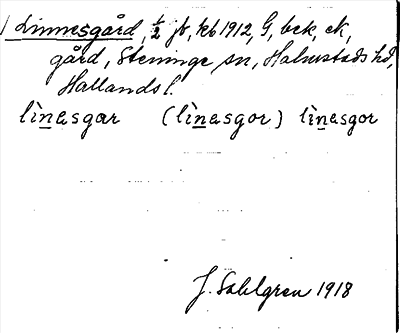 1 Linnesgård, ½ jb, kb 1912, G, bck, ek,
gård, Steninge sn, Halmstads hd,
Hallands l.
lìnesgar (lìnesgor) lìnesgor
J. Sahlgren 1918